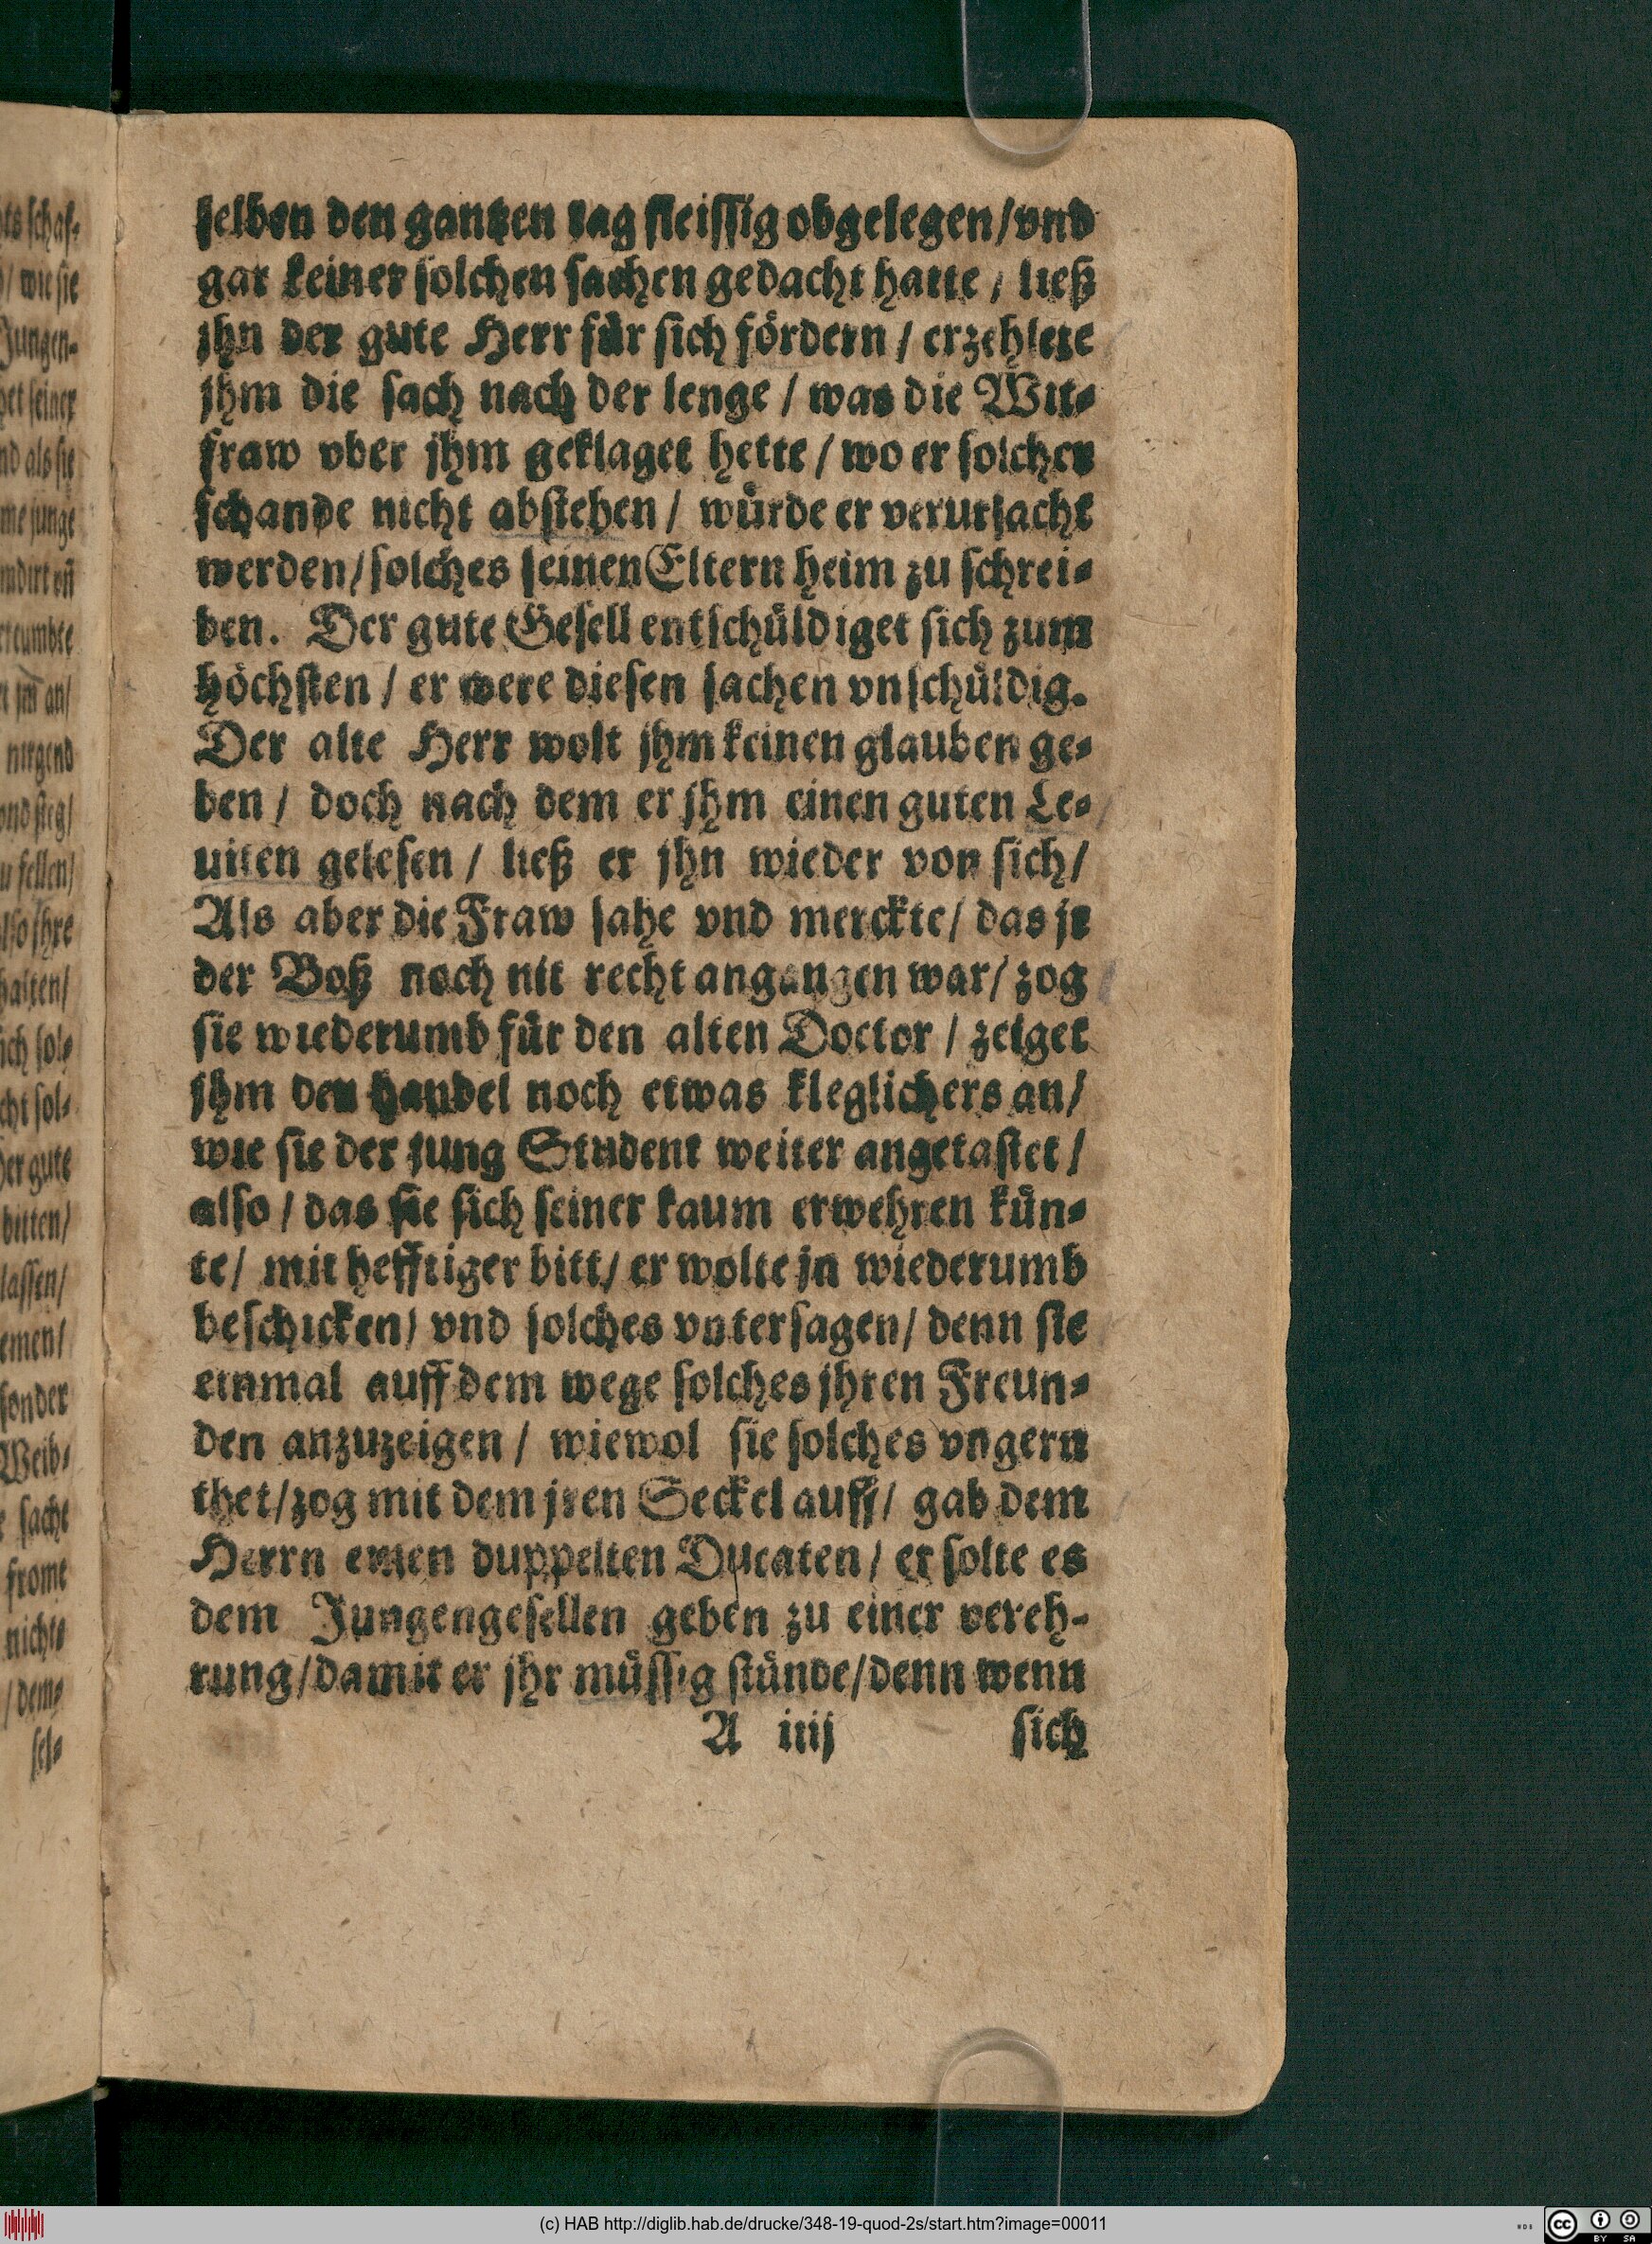 selben den gantzen tag fleissig obgelegen/vnd
gar keiner solchen sachen gedacht hatte / ließ
jhn der gute Herr für sich fördern / erzehlete
jhm die sach nach der lenge / was die Wit⸗
fraw vber jhm geklaget hette / wo er solcher
schande nicht abstehen / würde er verursacht
werden/solches seinen Eltern heim zu schrei⸗
ben. Der gute Gesell entschüldiget sich zum
höchsten / er were diesen sachen vnschüldig.
Der alte Herr wolt jhm keinen glauben ge⸗
ben / doch nach dem er jhm einen guten Le⸗
uiten gelesen / ließ er jhn wieder von sich/
Als aber die Fraw sahe vnd merckte/ das jr
der Boß noch nit recht angangen war/ zog
sie wiederumb für den alten Doctor / zeiget
jhm den handel noch etwas kleglichers an/
wie sie der jung Student weiter angetastet /
also / das sie sich seiner kaum erwehren kün⸗
te/ mit hefftiger bitt/ er wolte jn wiederumb
beschicken/ vnd solches vntersagen/ denn sie
einmal auff dem wege solches jhren Freun⸗
den anzuzeigen / wiewol sie solches vngern
thet/zog mit dem jren Seckel auff/ gab dem
Herrn einen duppelten Ducaten / er solte es
dem Jungengesellen geben zu einer vereh-
rung/damit er jhr müssig stünde/denn wenn
A iiij sich
(c) HAB http://diglib.hab.de/drucke/348-19-quod-2s/start.htm?image=00011